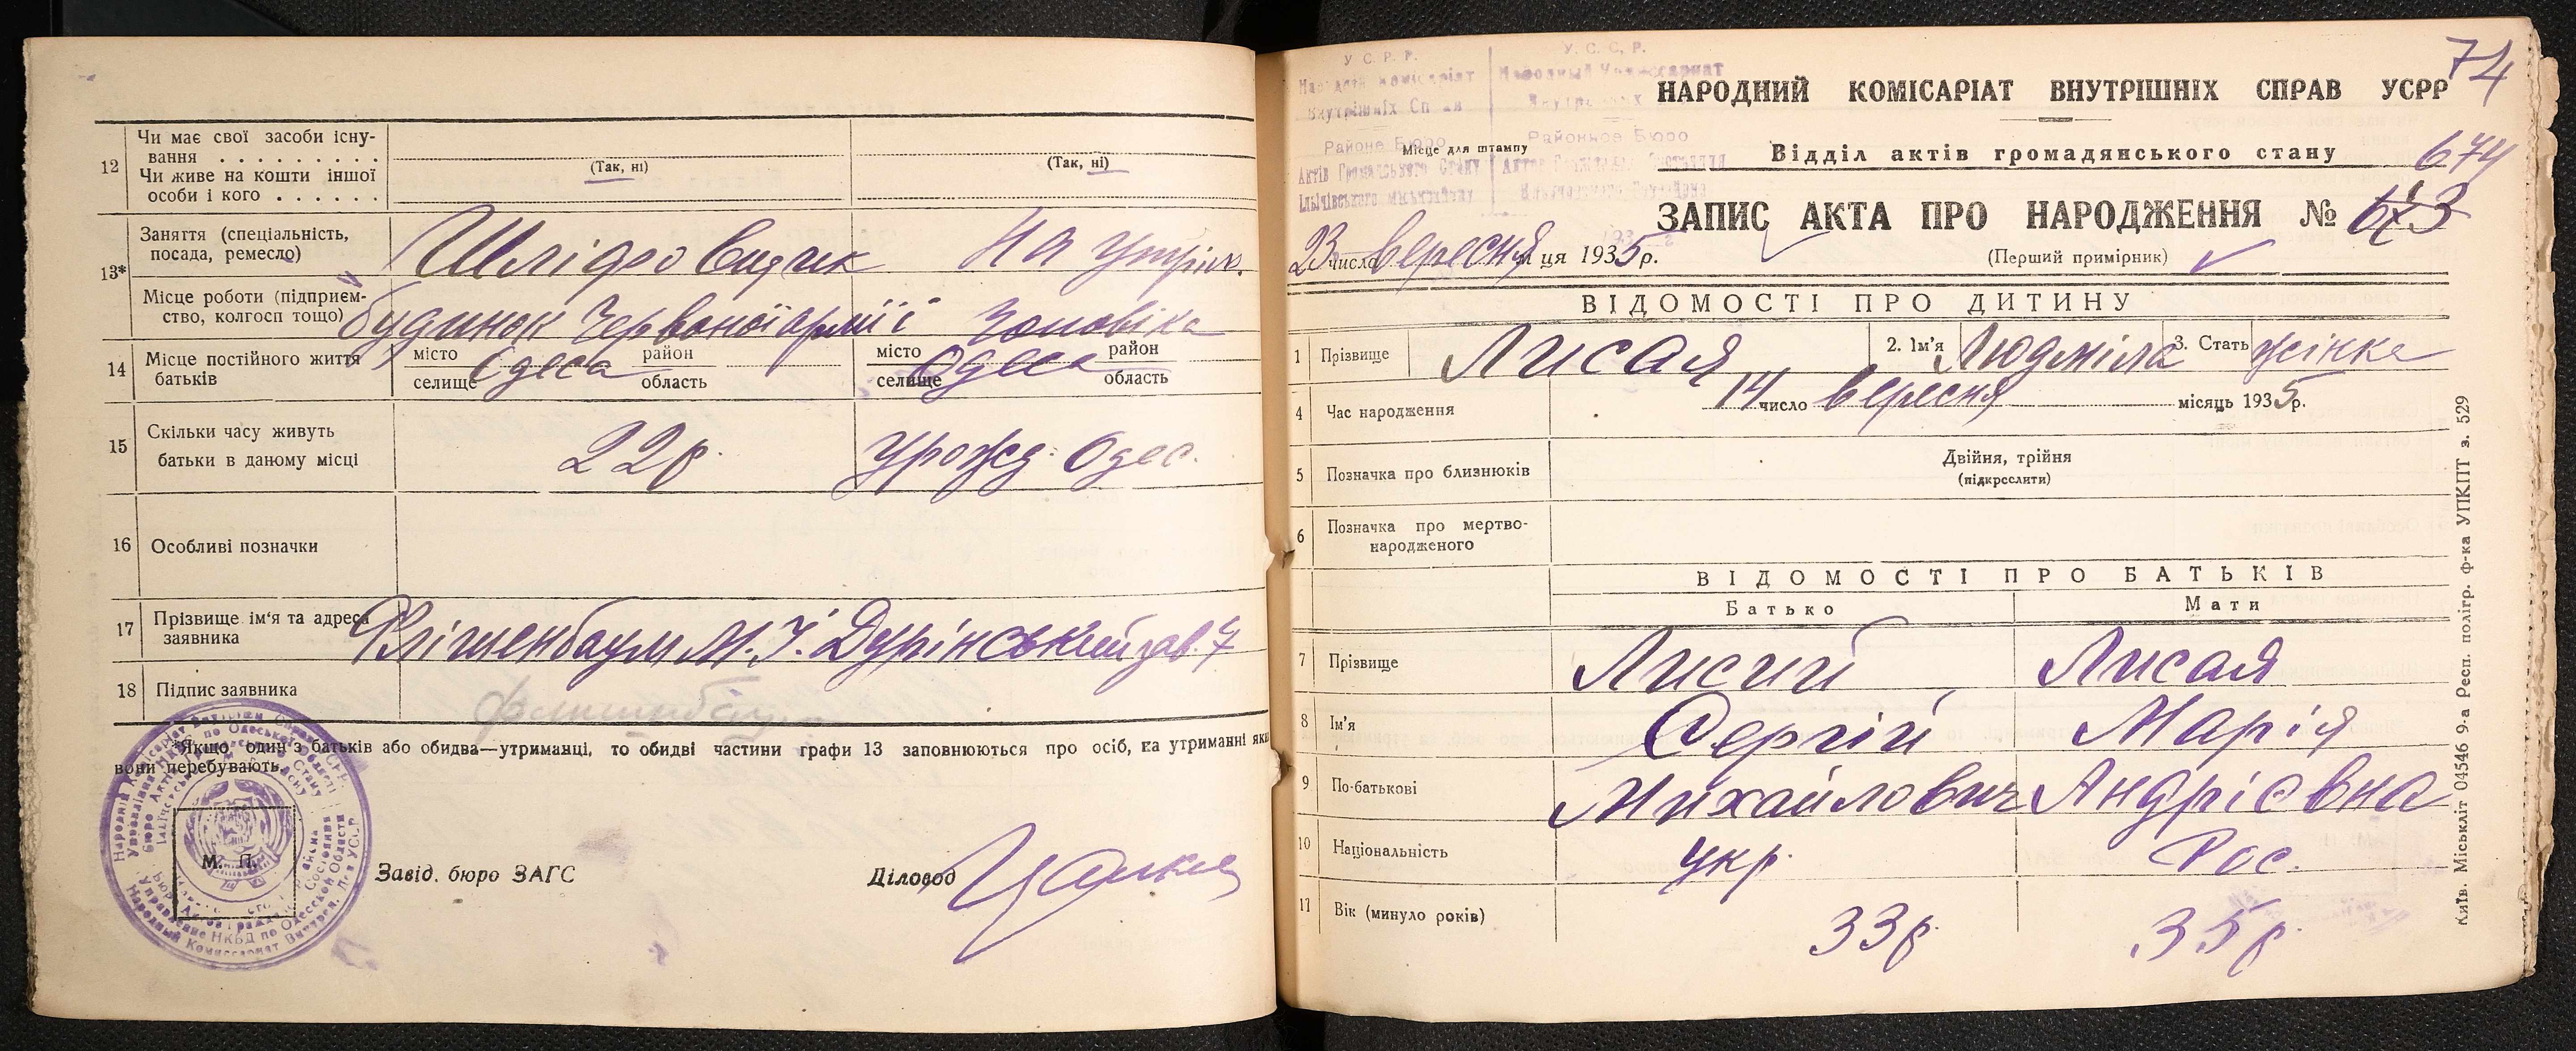 12 Чи має свої засоби існу-
вання . . . . . . . . .
Чи живе на кошти іншої
особи і кого . . . . . .
(Так, ні) (Так, ні)
13* Заняття (спеціальність,
посада, ремесло)
На утрим.
Місце роботи (підприєм-
ство, колгосп тощо)
будинок Червоної армії Чоловіка
14 Місце постійного життя
батьків
місто район місто район
Одеса Одеса
селище область селище область
15 Скільки часу живуть
батьки в даному місці
22р. урожд. Одес.
16 Особливі позначки
17 Прізвище ім'я та адреса
заявника
Флішенбаум М. І. Дурінський зав. 7
18 Підпис заявника
*Якщо один з батьків або обидва—утриманці, то обидві частини графи 13 заповнюються про осіб, на утриманні яки
вони перебувають.
М. П.
Завід. бюро ЗАГС Діловод
74
У. С. Р. Р. У. С. С. Р.
НАРОДНИЙ КОМІСАРІАТ ВНУТРІШНІХ СПРАВ УСРР
Районе Бюро Районное Бюро
Місце для штампу
Відділ актів громадянського стану
674
ЗАПИС АКТА ПРО НАРОДЖЕННЯ № 673
23 число вересня м ця 1935р.
(Перший примірник)
ВІДОМОСТІ ПРО ДИТИНУ
1 Прізвище Лисая 2. Ім'я Людміла 3. Стать жінка
4 Час народження 14 число вересня місяць 1935р.
5 Позначка про близнюків Двійня, трійня
(підкреслити)
6 Позначка про мертво-
народженого
ВІДОМОСТІ ПРО БАТЬКІВ
Батько Мати
7 Прізвище Лисий Лисая
8 Ім'я Сергій Марія
9 По-батькові Михайлович Андрієвна
10 Національність укр. Рос.
11 Вік (минуло років) 33р. 35р.
Київ. Міськліт 04546 9-а Респ. полігр. ф-ка УПКПТ з. 529